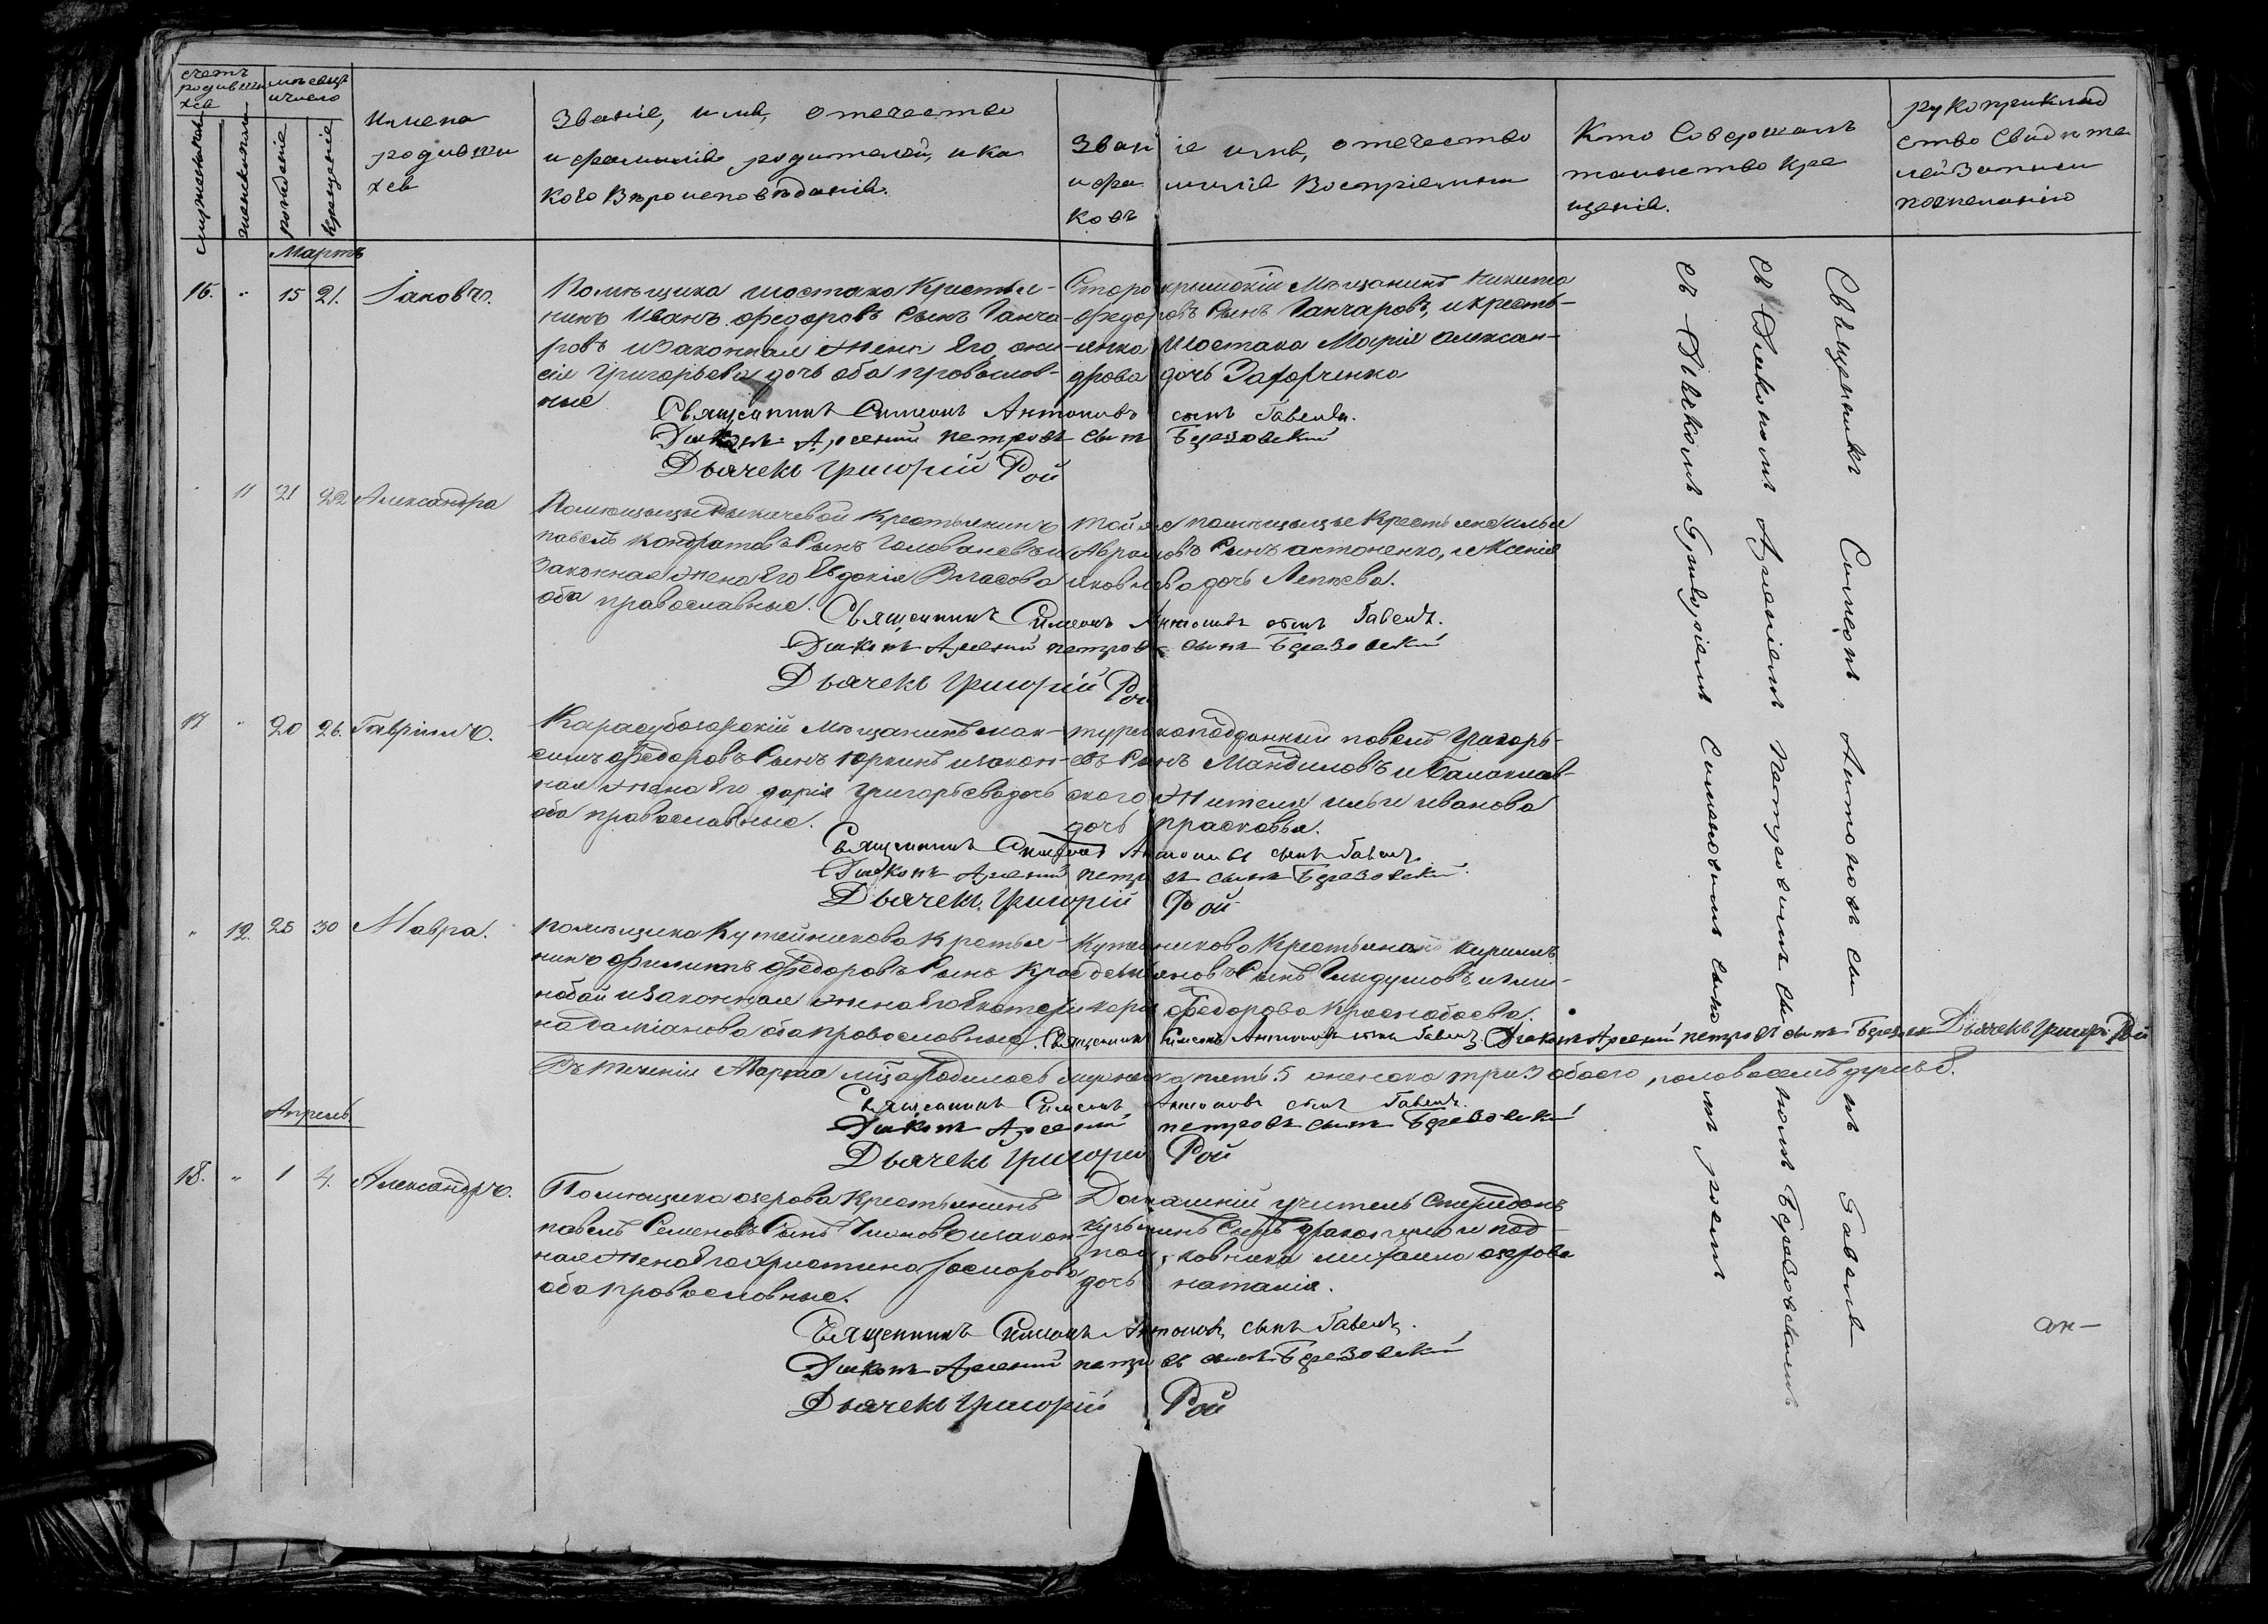 счетъ
родивши
хся
мѣсяцъ
и число
мужескаго пола
женскаго пола
рожденіе
крещеніе
Имена
родивши
хся
Званіе, имя, отечество
и фамилія родителей, и ка
кого вѣроисповѣданія.
Званіе имя, отечество
и фамилія Воспріемни
ковъ
Кто Совершалъ
таинство кре
щенія.
рукоприклад
ство Свидѣте
лей Записи
по желанію
Мартъ
16. " 15 21. Іаковъ.
Помѣщика Шостака Крестья-
нинъ Иванъ Федоровъ Сынъ Ганча
ровъ и Законная Жена Его
Григорьева дочь оба православ-
ные
Старокрымскій Мѣщанинъ Никита
Федоровъ Сынъ Ганчаровъ, и кресть-
янка Шостака Марія Алексан-
дрова дочь Захарченко
Священникъ Симеонъ Антоновъ сынъ Гавель.
Діаконъ Арсеній петровъ сынъ Березовскій
Дьячекъ Григорій Рой
" 11 21 22 Александра
Помѣщицы Рыкачевой Крестьянинъ
павелъ кондратовъ Сынъ Головачевъ и
Законная Жена Его Евдокія Власова
оба православные.
той же помѣщицы Крестьяне Илья
Аврамовъ Сынъ антоненко, и Ксенія
яковлева дочь
Священникъ Симеонъ Антоновъ сынъ Гавель.
Діаконъ Арсеній петровъ сынъ Березовскій
Дьячекъ Григорій Рой
17 " 20 26. Гавріилъ.
Карасубазарскій Мѣщанинъ мак-
симъ Федоровъ Сынъ Юркинъ и закон-
ная Жена Его дарія Григорьева дочь
оба православные.
турецкоподданный павелъ Григорь-
евъ Сынъ Мандиловъ и Балаклав-
скаго Жителя ильи иванова
дочь прасковья.
Священникъ Симеонъ Антоновъ сынъ Гавель.
Діаконъ Арсеній петровъ сынъ Березовскій
Дьячекъ Григорій Рой
" 12. 25 30 Мавра.
помѣщика Кутейникова Крестья-
нинъ Филипъ Федоровъ Сынъ Крас
нобай и Законная Жена Его Екатери
на даміанова оба православные.
Кутейникова Крестьянинъ Кирилъ
демьяновъ Сынъ
Федорова Краснобаева.
Священникъ Симеонъ Антоновъ сынъ Гавель. Діаконъ Арсеній петровъ сынъ Березовскій Дьячекъ Григорій Рой
Въ теченіи Марта мца родилось мужеска пять 5 женска три 3 обоего пола восемъ душъ 8.
Священникъ Симеонъ Антоновъ сынъ Гавель.
Діаконъ Арсеній петровъ сынъ Березовскій
Дьячекъ Григорій Рой
Апрель
18. " 1 4. Александръ.
Помѣщика озерова Крестьянинъ
павелъ Семеновъ Сынъ и закон
ная Жена Его христина
оба православные.
Домашній учитель Спиридонъ
кузьминъ Сынъ и под
полковника михаила озерова
дочь наталія.
Священникъ Симеонъ Антоновъ сынъ Гавель.
Діаконъ Арсеній петровъ сынъ Березовскій
Дьячекъ Григорій Рой
Священникъ Симеонъ Антоновъ сынъ Гавель
съ Діакономъ Арсеніемъ Петровымъ сыномъ Березовскимъ
съ Дьячкомъ Григоріемъ сыномъ роемъ